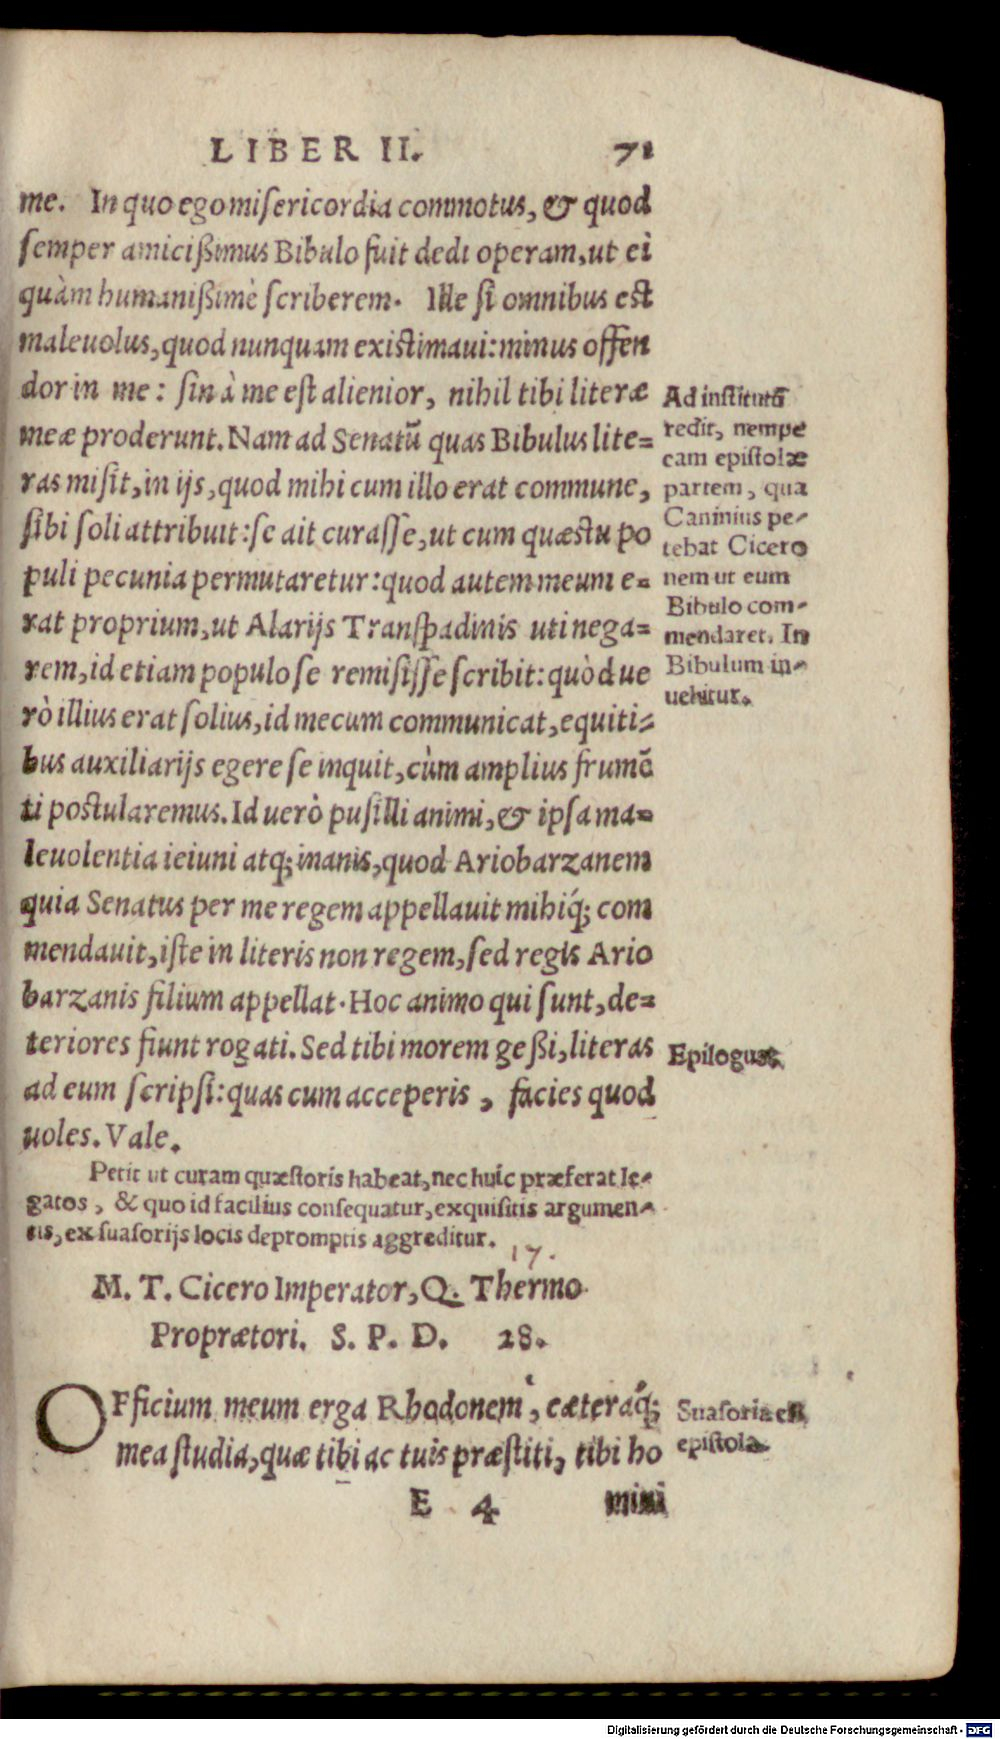 LIBER II. 71
me. In quo ego miſericordia commotus, & quod
ſemper amicißimus Bibulo fuit dedi operam, ut ei
quàm humanißimè ſcriberem. Ille ſi omnibus eſt
maleuolus, quod nunquam exiſtimaui: minus offen
dor in me: ſin à me eſt alienior, nihil tibi literæ
meæ proderunt. Nam ad Senatũ quas Bibulus lite=
ras miſit, in ijs, quod mihi cum illo erat commune,
ſibi ſoli attribuit: ſe ait curaſſe, ut cum quæſtu po
puli pecunia permutaretur: quod autem meum e=
rat proprium, ut Alarijs Tranſpadinis uti nega=
rem, id etiam populo ſe remiſiſſe ſcribit: quòd ue
rò illius erat ſolius, id mecum communicat, equiti=
bus auxiliarijs egere ſe inquit, cùm amplius frumẽ
ti poſtularemus. Id uerò puſilli animi, & ipſa ma=
leuolentia ieiuni atq; inanis, quod Ariobarzanem
quia Senatus per me regem appellauit mihiq́; com
mendauit, iſte in literis non regem, ſed regis Ario
barzanis filium appellat. Hoc animo qui ſunt, de=
teriores fiunt rogati. Sed tibi morem geßi, literas
ad eum ſcripſi: quas cum acceperis, facies quod
uoles. Vale.
Ad inſtitutũ
redit, nempe
eam epiſtolæ
partem, qua
Caninius pe-
tebat Cicero
nem ut eum
Bibulo com-
mendaret. In
Bibulum in-
uehitur.
Epilogus.
Petit ut curam quæſtoris habeat, nec huic præferat le-
gatos, & quo id facilius conſequatur, exquiſitis argumen-
tis, ex ſuaſorijs locis depromptis aggreditur.
17.
M. T. Cicero Imperator, Q. Thermo
Proprætori. S. P. D. 28.
OFficium meum erga Rhodonem, cæteraq́;
mea ſtudia, quæ tibi ac tuis præſtiti, tibi ho
Suaſoria eſt
epiſtola.
E 4 mini
Digitalisierung gefördert durch die Deutsche Forschungsgemeinschaft - DFG